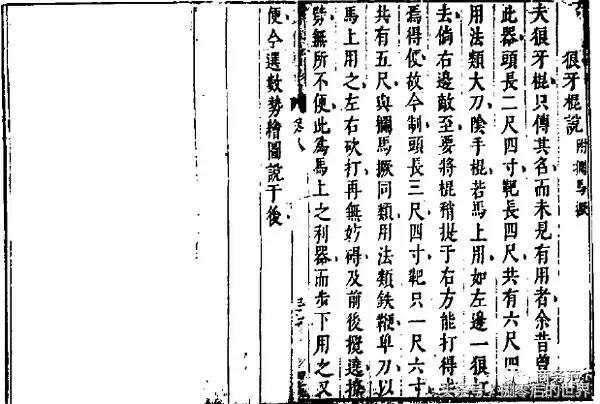 狼牙棍說 附攔馬橛
夫狼牙棍只傳其名而未見有用者余昔曾
此器頭長二尺四寸靶長四尺共有六尺四
用法類大刀陰手棍若馬上用如左邊一狠打
去倘右邊敵至要將棍稍提于右方能打得
焉得便故今制頭長三尺四寸靶只一尺六寸
共有五尺與攔馬橛同類用法類鉄鞭单刀以
馬上用之左右砍打再無妨碍及前後攪遶
無所不便此為馬上之利器而步下用之又
便今選数勢繪圖說于後
卷八
的世界